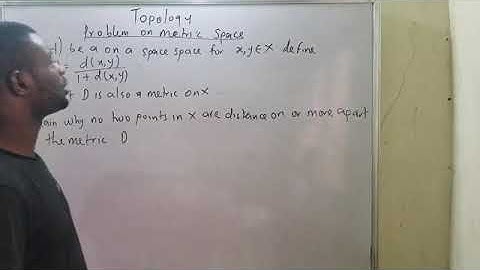 Topology
Problem on metric space
d) be a on a space space for x,y∈X define
d(x,y)
1+d(x,y)
D is also a metric on X
why no two points in X are distance on or more apart
the metric D